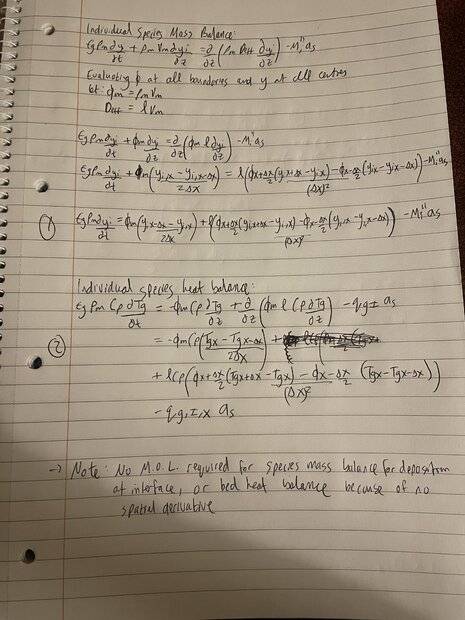 Individual Species Mass Balance:
εgρm ∂yi/∂t + ρm Vm ∂yi/∂z = ∂/∂z (ρm Deff ∂yi/∂z) - Mi'' as
Evaluating ϕ at all boundaries and y at all centres
let: ϕm = ρm Vm
Deff = l Vm
εgρm ∂yi/∂t + ϕm ∂yi/∂z = ∂/∂z (ϕm l ∂yi/∂z) - Mi'' as
εgρm ∂yi/∂t + ϕm (yi,x - yi,x-Δx)/2Δx = l (ϕx+Δx/2 (yi,x+Δx - yi,x) - ϕx-Δx/2 (yi,x - yi,x-Δx))/(Δx)² - Mi'' as
① εgρm ∂yi/∂t = ϕm (yi,x-Δx - yi,x)/2Δx + l (ϕx+Δx/2 (yi,x+Δx - yi,x) - ϕx-Δx/2 (yi,x - yi,x-Δx))/(Δx)² - Mi'' as
Individual species heat balance:
εg ρm Cp ∂Tg/∂t = -ϕm Cp ∂Tg/∂z + ∂/∂z (ϕm l Cp ∂Tg/∂z) - qg,I as
② = -ϕm Cp (Tg,x - Tg,x-Δx)/2Δx +
+ l Cp (ϕx+Δx/2 (Tg,x+Δx - Tg,x) - ϕx-Δx/2 (Tg,x - Tg,x-Δx))/(Δx)²
- qg,I,x as
→ Note: No M.O.L. required for species mass balance for deposition
at interface, or bed heat balance because of no
spatial derivative